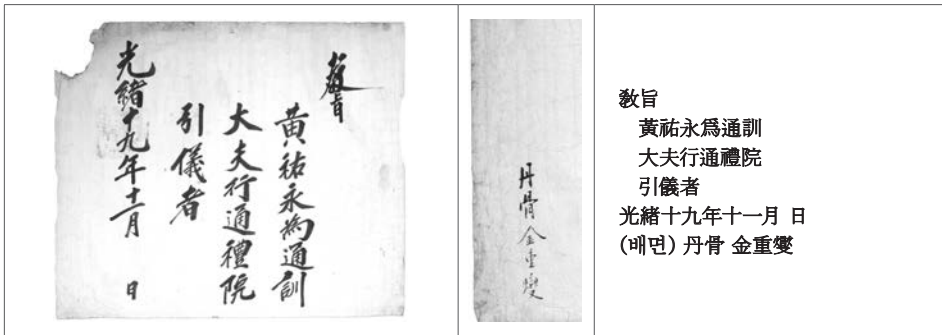 敎旨
黃祐永爲通訓
大夫行通禮院
引儀者
光緖十九年十一月 日
丹骨 金重燮
敎旨
黃祐永爲通訓
大夫行通禮院
引儀者
光緖十九年十一月 日
(배면) 丹骨 金重燮